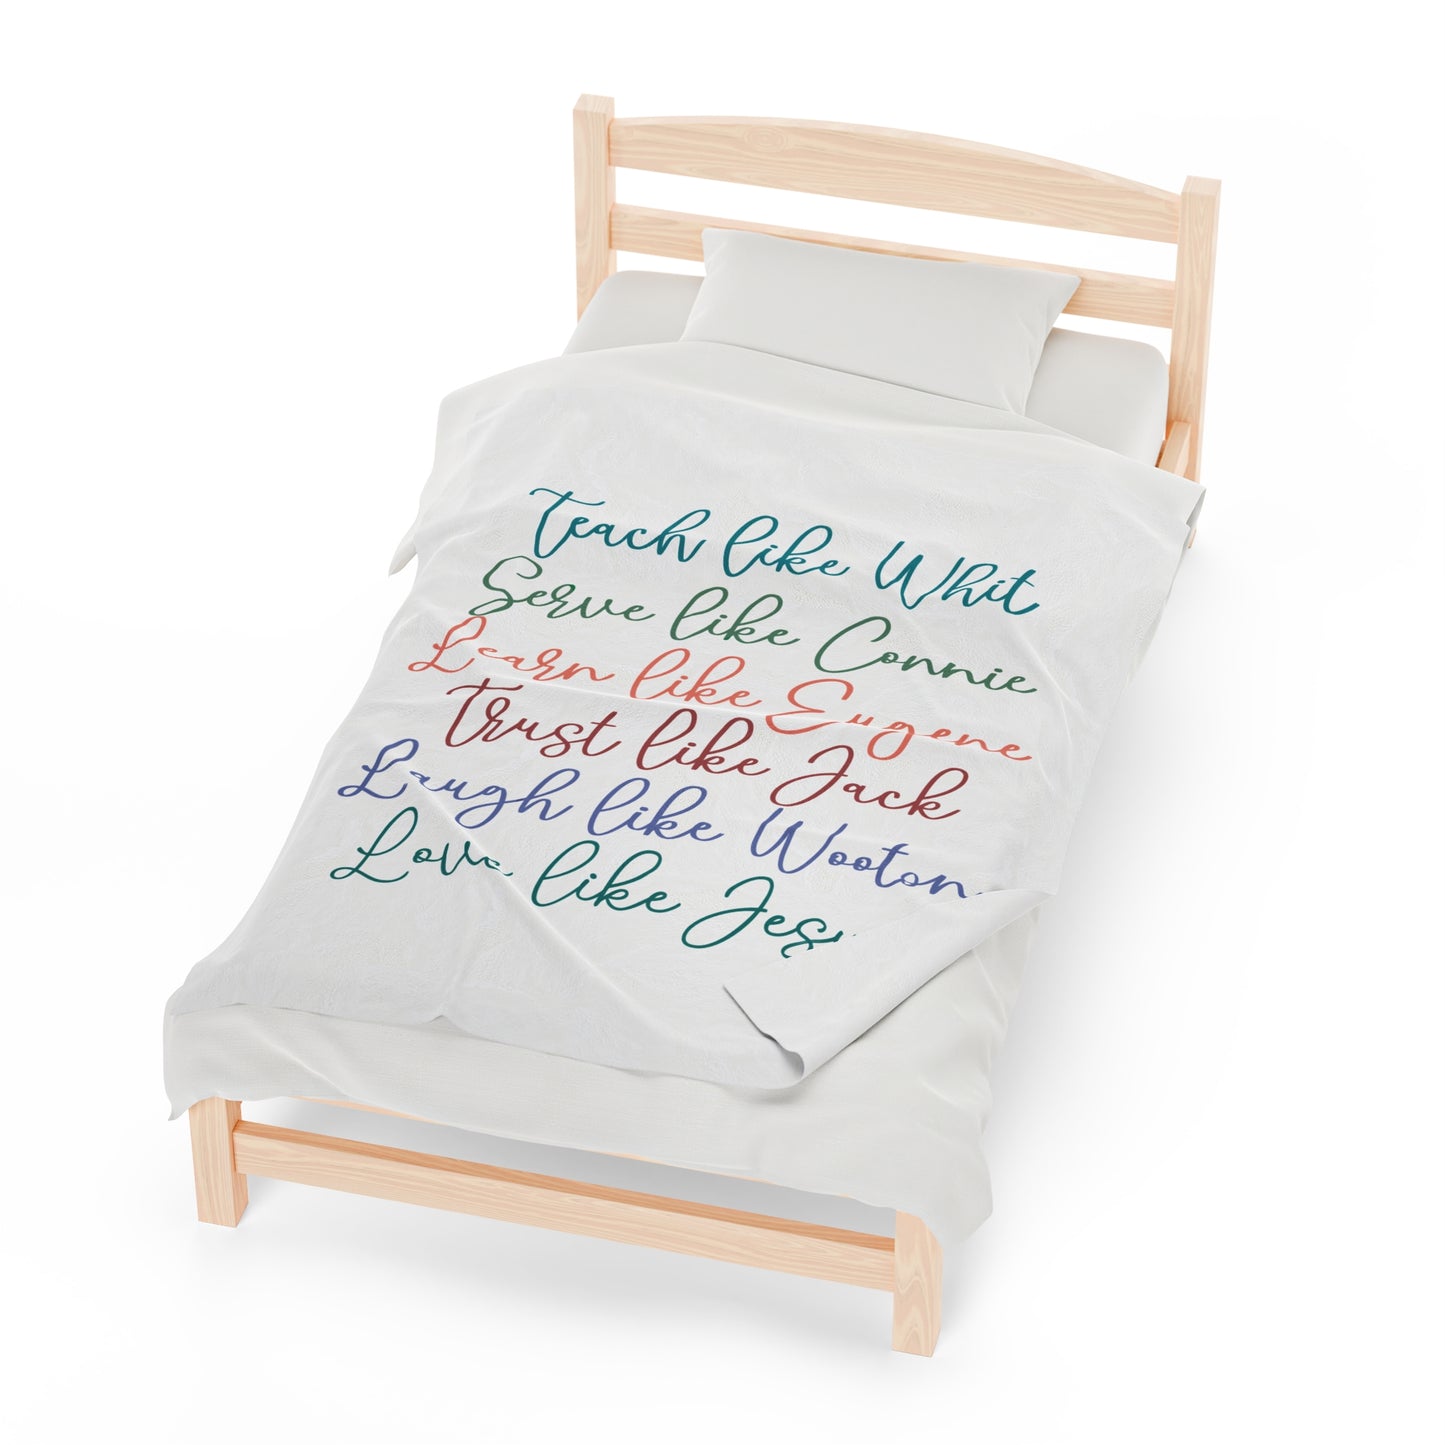 Teach like Whit
Serve like Connie
Learn like Eugene
Trust like Jack
Laugh like Wooton
Love like Jes